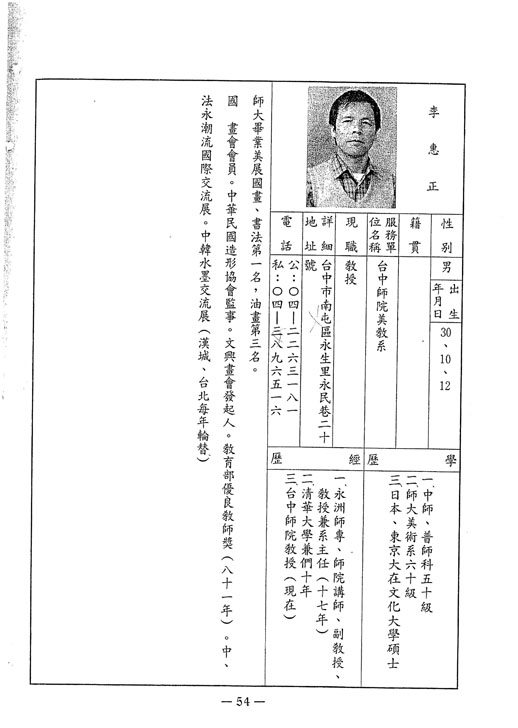 李惠正
性別
男
出生年月日
30、10、12
籍貫
服務單位名稱
台中師院美教系
現職
教授
詳細地址
台中市南屯區永生里永民巷二十號
電話
公：〇四—二二六三一八一
私：〇四—三八九六五一六
學歷
一、中師、普師科五十級
二、師大美術系六十級
三、日本、東京大在文化大學碩士
經歷
一、永洲師專、師院講師、副教授、
教授兼系主任（十七年）
二、清華大學兼們十年
三、台中師院教授（現在）
師大畢業美展國畫、書法第一名，油畫第三名。
國　畫會會員。中華民國造形協會監事。文興畫會發起人。教育部優良教師獎（八十一年）。中、
法永潮流國際交流展。中韓水墨交流展（漢城、台北每年輪替）
— 54 —